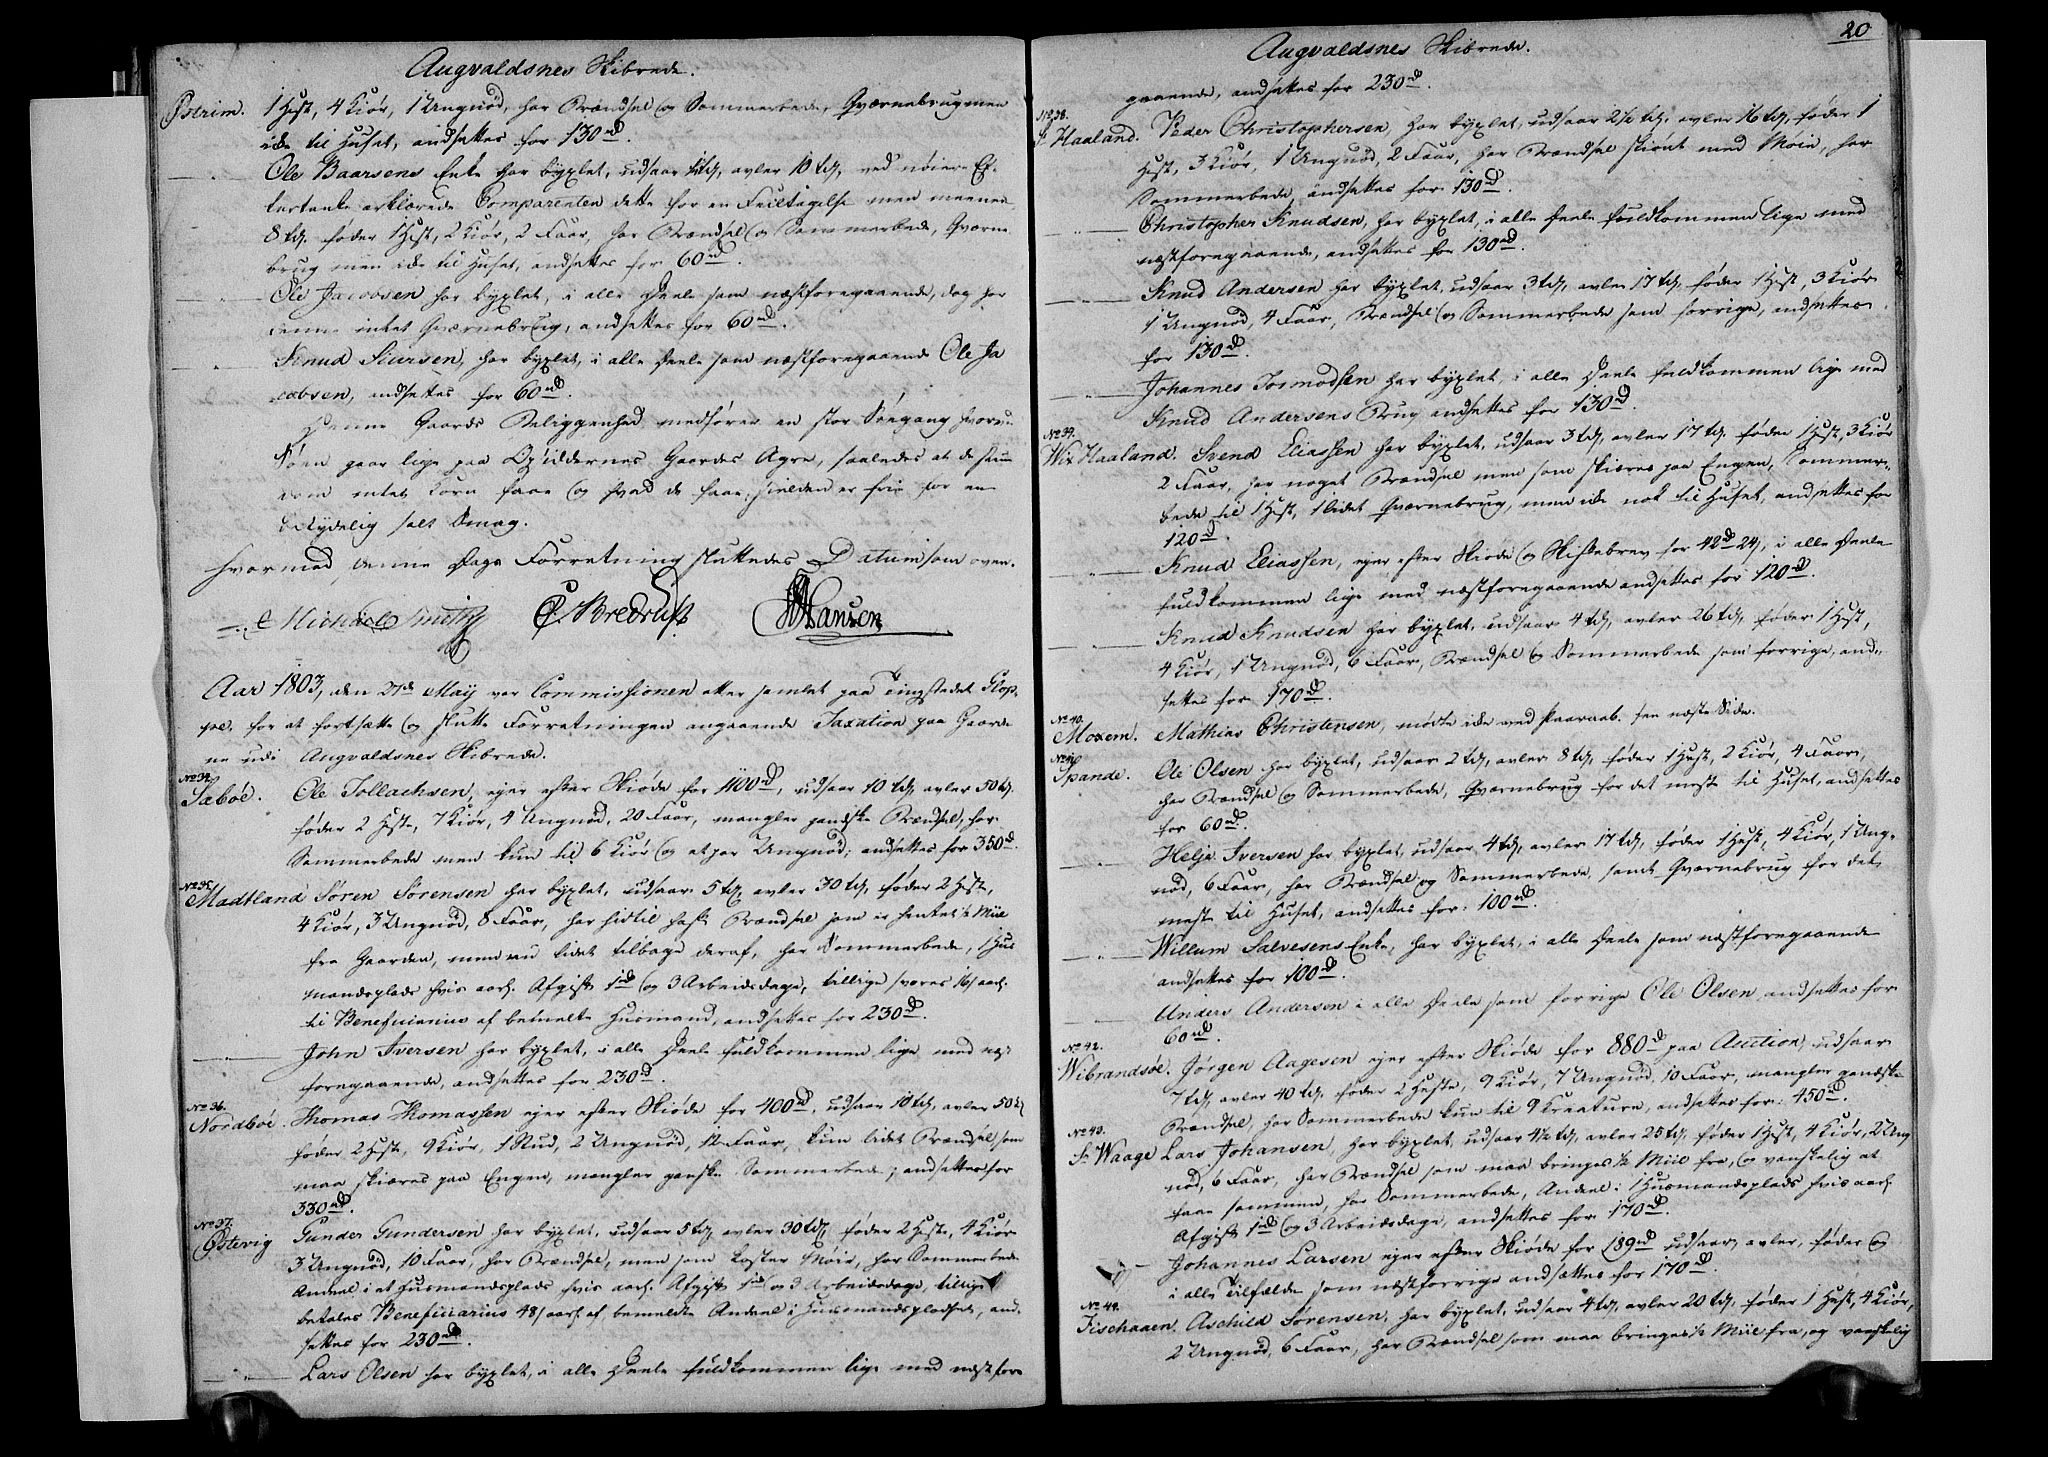 Augvaldsnes Skibrede.
Østrim. 1 Hest, 4 Kiør, 1 Ungnød, har Brændsel og Sommerbede, Qværnebrug men
ikke til Huset, andsættes for 130 rd.
Ole Baarsens Enke har byxlet, udsaar td, avler 10 td, ved nøiere Ef-
tertanke erklærede Comparenten dette for en Feiltagelse men meener
8 td. føder 1 Hest, 2 Kiør, 2 Faar, har Brændsel og Sommerbede, Qværne
brug men ikke til Huset, andsættes for 60 rd.
Ole Jacobsen har byxlet, i alle Deele som næstforegaaende, dog har
denne intet Qværnebrug, andsættes for 60 rd.
Knud Siursen, har byxlet, i alle Deele som næstforegaaende Ole Ja
cobsen, andsættes for 60 rd.
Denne Gaards Beliggenhed medfører en stor Søegang hvorved
Søen gaar lige paa Opsiddernes Gaardes Agre, saaledes at de
intet Korn faaer og hvad de faaer, sielden er frie for en
betydelig salt Smag.
Hvormed denne Dags Forretning sluttedes Datum som oven.
Michael Smith C. Bredrup Hansen
Aar 1803, den 27de May var Commissionen atter samlet paa Tingstedet Stop-
pe, for at fortsætte og slutte Forretningen angaaende Taxation paa Gaarde
ne udi Augvaldsnes Skibrede.
No 34.
Sæbøe. Ole Tollachsen, ejer efter Skiøde for 1100 rd, udsaar 10 td, avler 50 td.
føder 2 Heste, 7 Kiør, 4 Ungnød, 20 Faar, mangler gandske Brændsel, har
Sommerbede men kun til 6 Kiør og et par Ungnød; andsættes for 350 rd.
No 35.
Madtland Søren Sørensen har byxlet, udsaar 5 td, avler 30 td, føder 2 Heste,
4 Kiør, 3 Ungnød, 8 Faar, har hidtil havt Brændsel som er hentet ½ Miil
fra Gaarden, men nu lidet tilbage deraf, har Sommerbede, 1 Hus
mandsplads hvis aarl. Afgift 1 rd og 3 Arbeidsdage, tillige svares 16 s aarl.
til Beneficiarius af bemelte Husmand, andsættes for 230 rd.
John Iversen har byxlet, i alle Deele fuldkommen lige med næst
foregaaende, andsættes for 230 rd.
No 36.
Nordbøe. Thomas Thomassen ejer efter Skiøde for 400 rd, udsaar 10 td, avler 50 td
føder 2 Heste, 9 Kiør, 1 Stud, 2 Ungnød, 12 Faar, kun lidet Brændsel som
maa skiæres paa Engen, mangler ganske Sommerbede; andsættes for
330 rd.
No 37.
Østevig Gunder Gundersen har byxlet, udsaar 5 td, avler 30 td, føder 2 Heste, 4 Kiør
3 Ungnød, 10 Faar, har Brændsel, men som koster Møie, har Sommerbede
Andeel i et Husmandsplads hvis aarl. Afgift 1 rd og 3 Arbeidsdage, tillige
betales Beneficiarius 48 s aarl. af bemeldte Andeel i Husmandspladset, and-
sættes for 230 rd.
Lars Olsen har byxlet, i alle Deele fuldkommen lige med næstfore
20
Augvaldsnes Skibrede.
gaaende, andsættes for 230 rd.
No 38.
Haaland. Peder Christophersen, har byxlet, udsaar 2½ td, avler 16 td, føder 1
Hest, 3 Kiør, 1 Ungnød, 2 Faar, har Brændsel skiønt med Møie, har
Sommerbede, andsættes for 130 rd.
Christopher Knudsen, har byxlet, i alle Deele fuldkommen lige med
næstforegaaende, andsættes for 130 rd.
Knud Andersen har byxlet, udsaar 3 td, avler 17 td, føder 1 Hest, 3 Kiør
1 Ungnød, 4 Faar, Brændsel og Sommerbede som forrige, andsættes
for 130 rd.
Johannes Tormodsen har byxlet, i alle Deele fuldkommen lige med
Knud Andersens Brug andsættes for 130 rd.
No 39.
Wix Haaland. Svend Eliassen har byxlet, udsaar 3 td, avler 17 td, føder 1 Hest, 3 Kiør
2 Faar, har noget Brændsel men som skiæres paa Engen, Sommer-
bede til 1 Hest, 1 lidet Qværnebrug, men ikke nok til Huset, andsættes for
120 rd.
Knud Eliassen, ejer efter Skiøde og Skiftebrev for 42 rd 24 s, i alle Deele
fuldkommen lige med næstforegaaende andsættes for 120 rd.
Knud Knudsen har byxlet, udsaar 4 td, avler 26 td, føder 1 Hest,
4 Kiør, 1 Ungnød, 6 Faar, Brændsel og Sommerbede som forrige, and-
sættes for 170 rd.
No 40.
Moxem. Mathias Christensen, mødte ikke ved Paaraab. see næste Side.
No 41.
Spande. Ole Olsen har byxlet, udsaar 2 td, avler 8 td, føder 1 Hest, 2 Kiør, 4 Faar,
har Brændsel og Sommerbede, Qværnebrug for det meste til Huset, andsættes
for 60 rd.
Helje Iversen har byxlet, udsaar 4 td, avler 17 td, føder 1 Hest, 4 Kiør, 1 Ung-
nød, 6 Faar, har Brændsel og Sommerbede, samt Qværnebrug for det
meste til Huset, andsættes for 100 rd.
Willum Salvesens Enke, har byxlet, i alle Deele som næstforegaaende
andsættes for 100 rd.
Anders Andersen i alle Deele som forrige Ole Olsen, andsættes for
60 rd.
No 42.
Wibrandsøe. Jørgen Aagesen ejer efter Skiøde for 880 rd paa Auction, udsaar
7 td, avler 40 td, føder 2 Heste, 9 Kiør, 7 Ungnød, 10 Faar, mangler gandske
Brændsel, har Sommerbede kun til 9 Kreature, andsættes for 450 rd.
No 43.
S. Waage Lars Johansen, har byxlet, udsaar 4½ td, avler 25 td, føder 1 Hest, 4 Kiør, 2 Ung
nød, 6 Faar, har Brændsel som maa bringes ½ Miil fra, og vanskelig at
faae sammen, har Sommerbede, Andeel i 1 Husmandsplads hvis aarl.
Afgift 1 rd og 3 Arbeidsdage, andsættes for 170 rd.
Johannes Larsen ejer efter Skiøde for 189 rd udsaar, avler, føder og
i alle Tilfælde som næstforrige andsættes for 170 rd.
No 44.
Fischaaen. Aschild Sørensen, har byxlet, udsaar 4 td, avler 20 td, føder 1 Hest, 4 Kiør,
2 Ungnød, 6 Faar, har Brændsel som maa bringes ½ Miil fra, og vanskelig